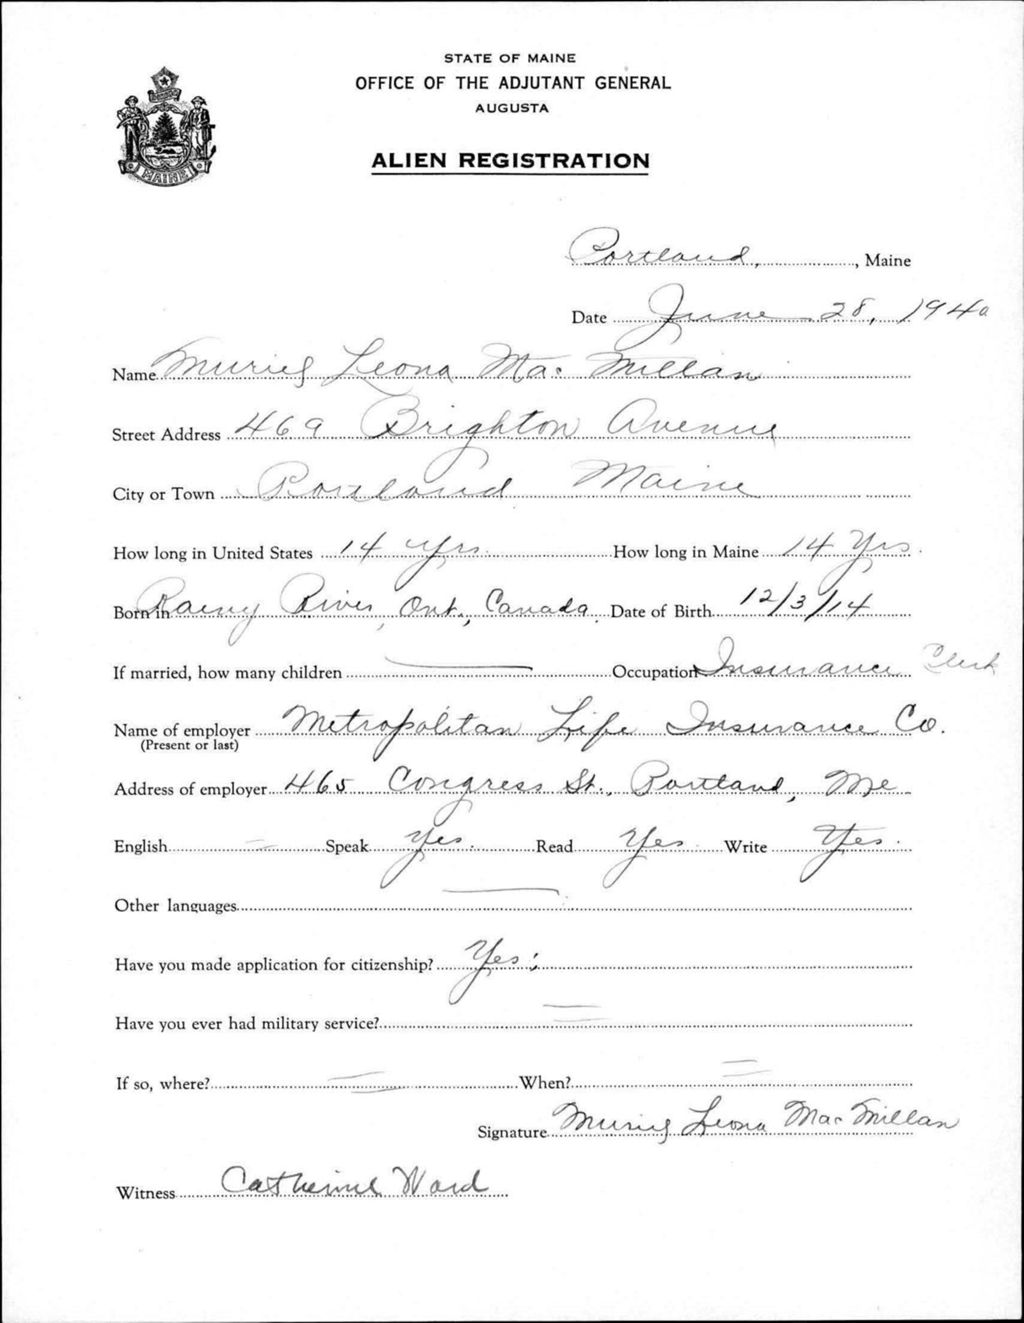 STATE OF MAINE
OFFICE OF THE ADJUTANT GENERAL
AUGUSTA
MAINE
ALIEN REGISTRATION
Portland, , Maine
Date June 28, 1940
Name Muriel Leona Mac Millan
Street Address 469 Brighton Avenue
City or Town Portland Maine
How long in United States 14 yrs. How long in Maine 14 Yrs.
Born in Rainy River, Ont., Canada Date of Birth 12/3/14
If married, how many children — Occupation Insurance Clerk
Name of employer Metropolitan Life Insurance Co.
(Present or last)
Address of employer 465 Congress St., Portland, Me
English Speak Yes. Read Yes Write Yes.
Other languages —
Have you made application for citizenship? Yes;
Have you ever had military service? =
If so, where? = When? =
Signature Muriel Leona Mac Millan
Witness Catherine Ward